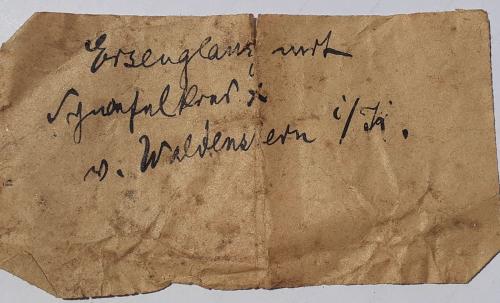 Eisenglanz mit
Schwefelkies
v. Waldenstein i/K.